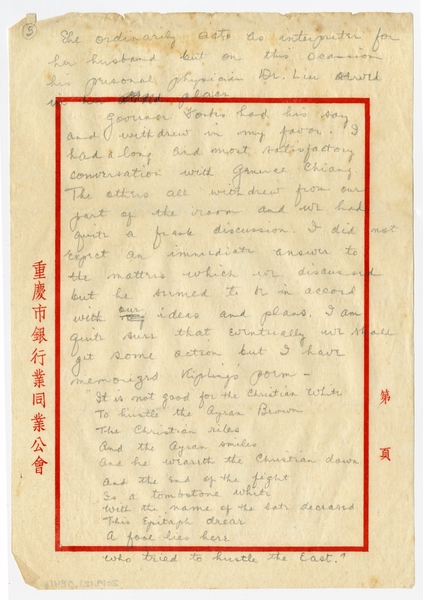 5
She ordinarily acts as interpreter for
her husband but on this occasion
his personal physician Dr. Lieu served
in her place
Governor Forbes had his say
and withdrew in my favor. I
had a long and most satisfactory
conversation with General Chiang.
The others all withdrew from our
part of the room and we had
quite a frank discussion. I did not
expect an immediate answer to
the matters which we discussed
but he seemed to be in accord
with our ideas and plans. I am
quite sure that eventually we should
get some action but I have
Kipling's poem -
"It is not good for the Christian White
To hustle the Ayran Brown
The Christian riles
And the Ayran smiles
And he weareth the Christian down
And the end of the fight
Is a tombstone white
With the name of the late deceased
This Epitaph drear
A fool lies here
who tried to hustle the East."
重慶市銀行業同業公會
第 頁